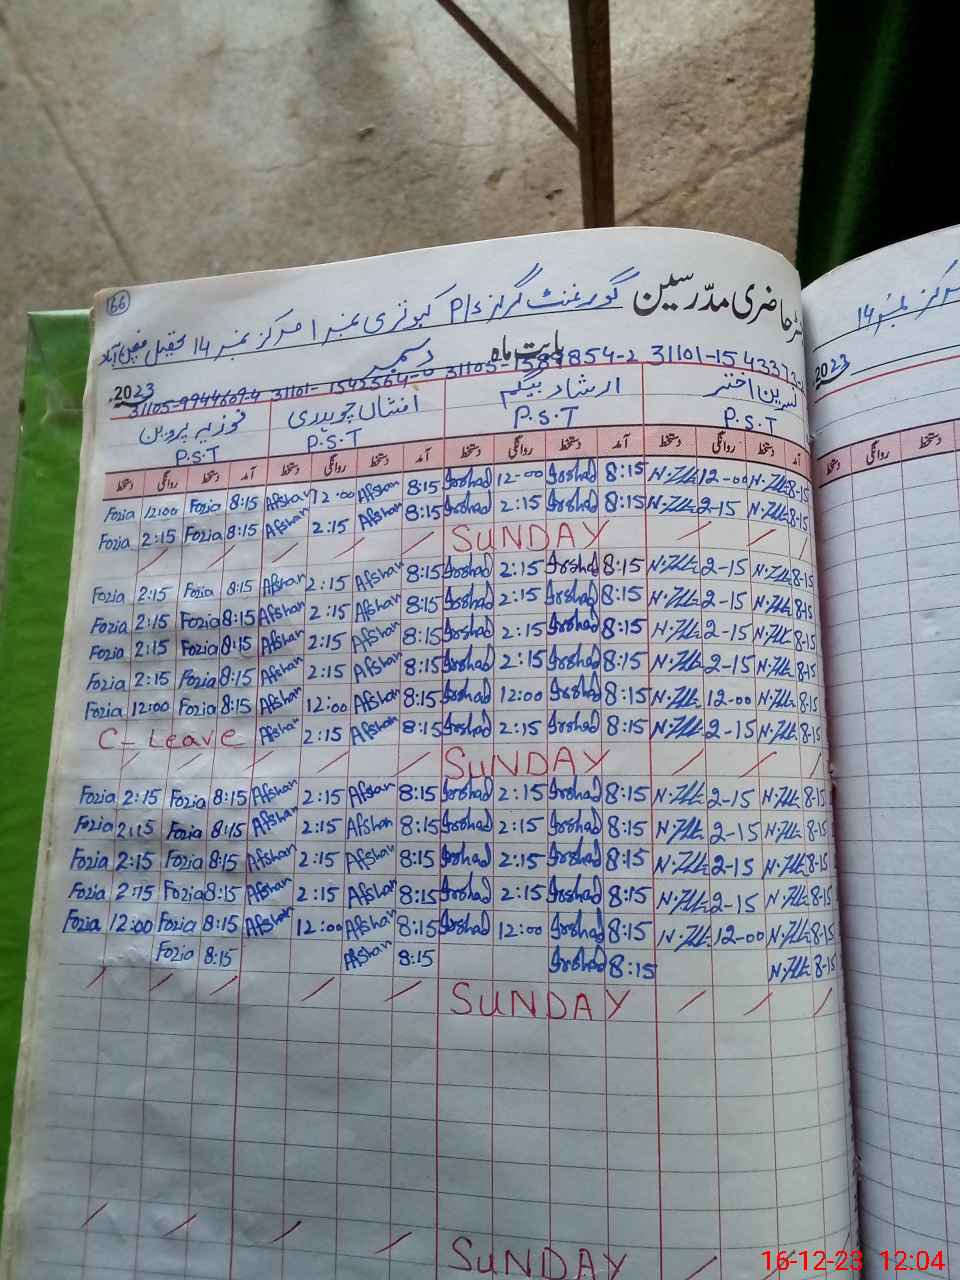 166
حاضری مدرسین گورنمنٹ گرلز P/S کبوتری نمبر 1 مرکز نمبر 14 تحصیل
بابت ماہ دسمبر 2023
31105-9944609-4 31101-1542564-0 31105-1589854-2 31101-15433
فوزیہ پروین افشاں چوہدری ارشاد بیگم نسرین اختر
P.S.T P.S.T P.S.T P.S.T
دستخط روانگی دستخط آمد دستخط روانگی دستخط آمد دستخط روانگی دستخط آمد دستخط روانگی دستخط آمد
Fozia 12:00 Fozia 8:15 Afshan 12:00 Afshan 8:15 Irshad 12-00 Irshad 8:15 12-00 8-15
Fozia 2:15 Fozia 8:15 Afshan 2:15 Afshan 8:15 Irshad 2:15 Irshad 8:15 2-15 8-15
SUNDAY
Fozia 2:15 Fozia 8:15 Afshan 2:15 Afshan 8:15 Irshad 2:15 Irshad 8:15 2-15 8-15
Fozia 2:15 Fozia 8:15 Afshan 2:15 Afshan 8:15 Irshad 2:15 Irshad 8:15 2-15 8-15
Fozia 2:15 Fozia 8:15 Afshan 2:15 Afshan 8:15 Irshad 2:15 Irshad 8:15 2-15 8-15
Fozia 2:15 Fozia 8:15 Afshan 2:15 Afshan 8:15 Irshad 2:15 Irshad 8:15 2-15 8-15
Fozia 12:00 Fozia 8:15 Afshan 12:00 Afshan 8:15 Irshad 12:00 Irshad 8:15 12-00 8-15
C-Leave Afshan 2:15 Afshan 8:15 Irshad 2:15 Irshad 8:15 2-15 8-15
SUNDAY
Fozia 2:15 Fozia 8:15 Afshan 2:15 Afshan 8:15 Irshad 2:15 Irshad 8:15 2-15 8-15
Fozia 2:15 Fozia 8:15 Afshan 2:15 Afshan 8:15 Irshad 2:15 Irshad 8:15 2-15 8-15
Fozia 2:15 Fozia 8:15 Afshan 2:15 Afshan 8:15 Irshad 2:15 Irshad 8:15 2-15 8-15
Fozia 2:15 Fozia 8:15 Afshan 2:15 Afshan 8:15 Irshad 2:15 Irshad 8:15 2-15 8-15
Fozia 12:00 Fozia 8:15 Afshan 12:00 Afshan 8:15 Irshad 12:00 Irshad 8:15 12-00 8-15
Fozia 8:15 Afshan 8:15 Irshad 8:15 8-15
SUNDAY
SUNDAY
مرکز نمبر 14
2023
دستخط روانگی دستخط
16-12-23 12:04